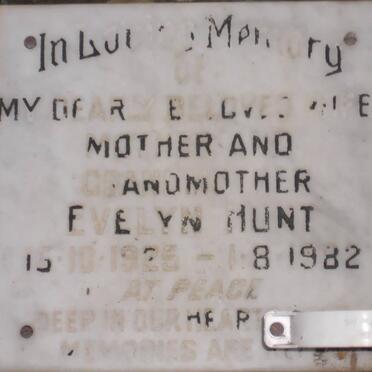 In Loving Memory
OF
MY DEARLY BELOVED WIFE
MOTHER AND
GRANDMOTHER
EVELYN HUNT
15·10·1925 – 1·8·1982
AT PEACE
DEEP IN OUR HEARTS
MEMORIES ARE